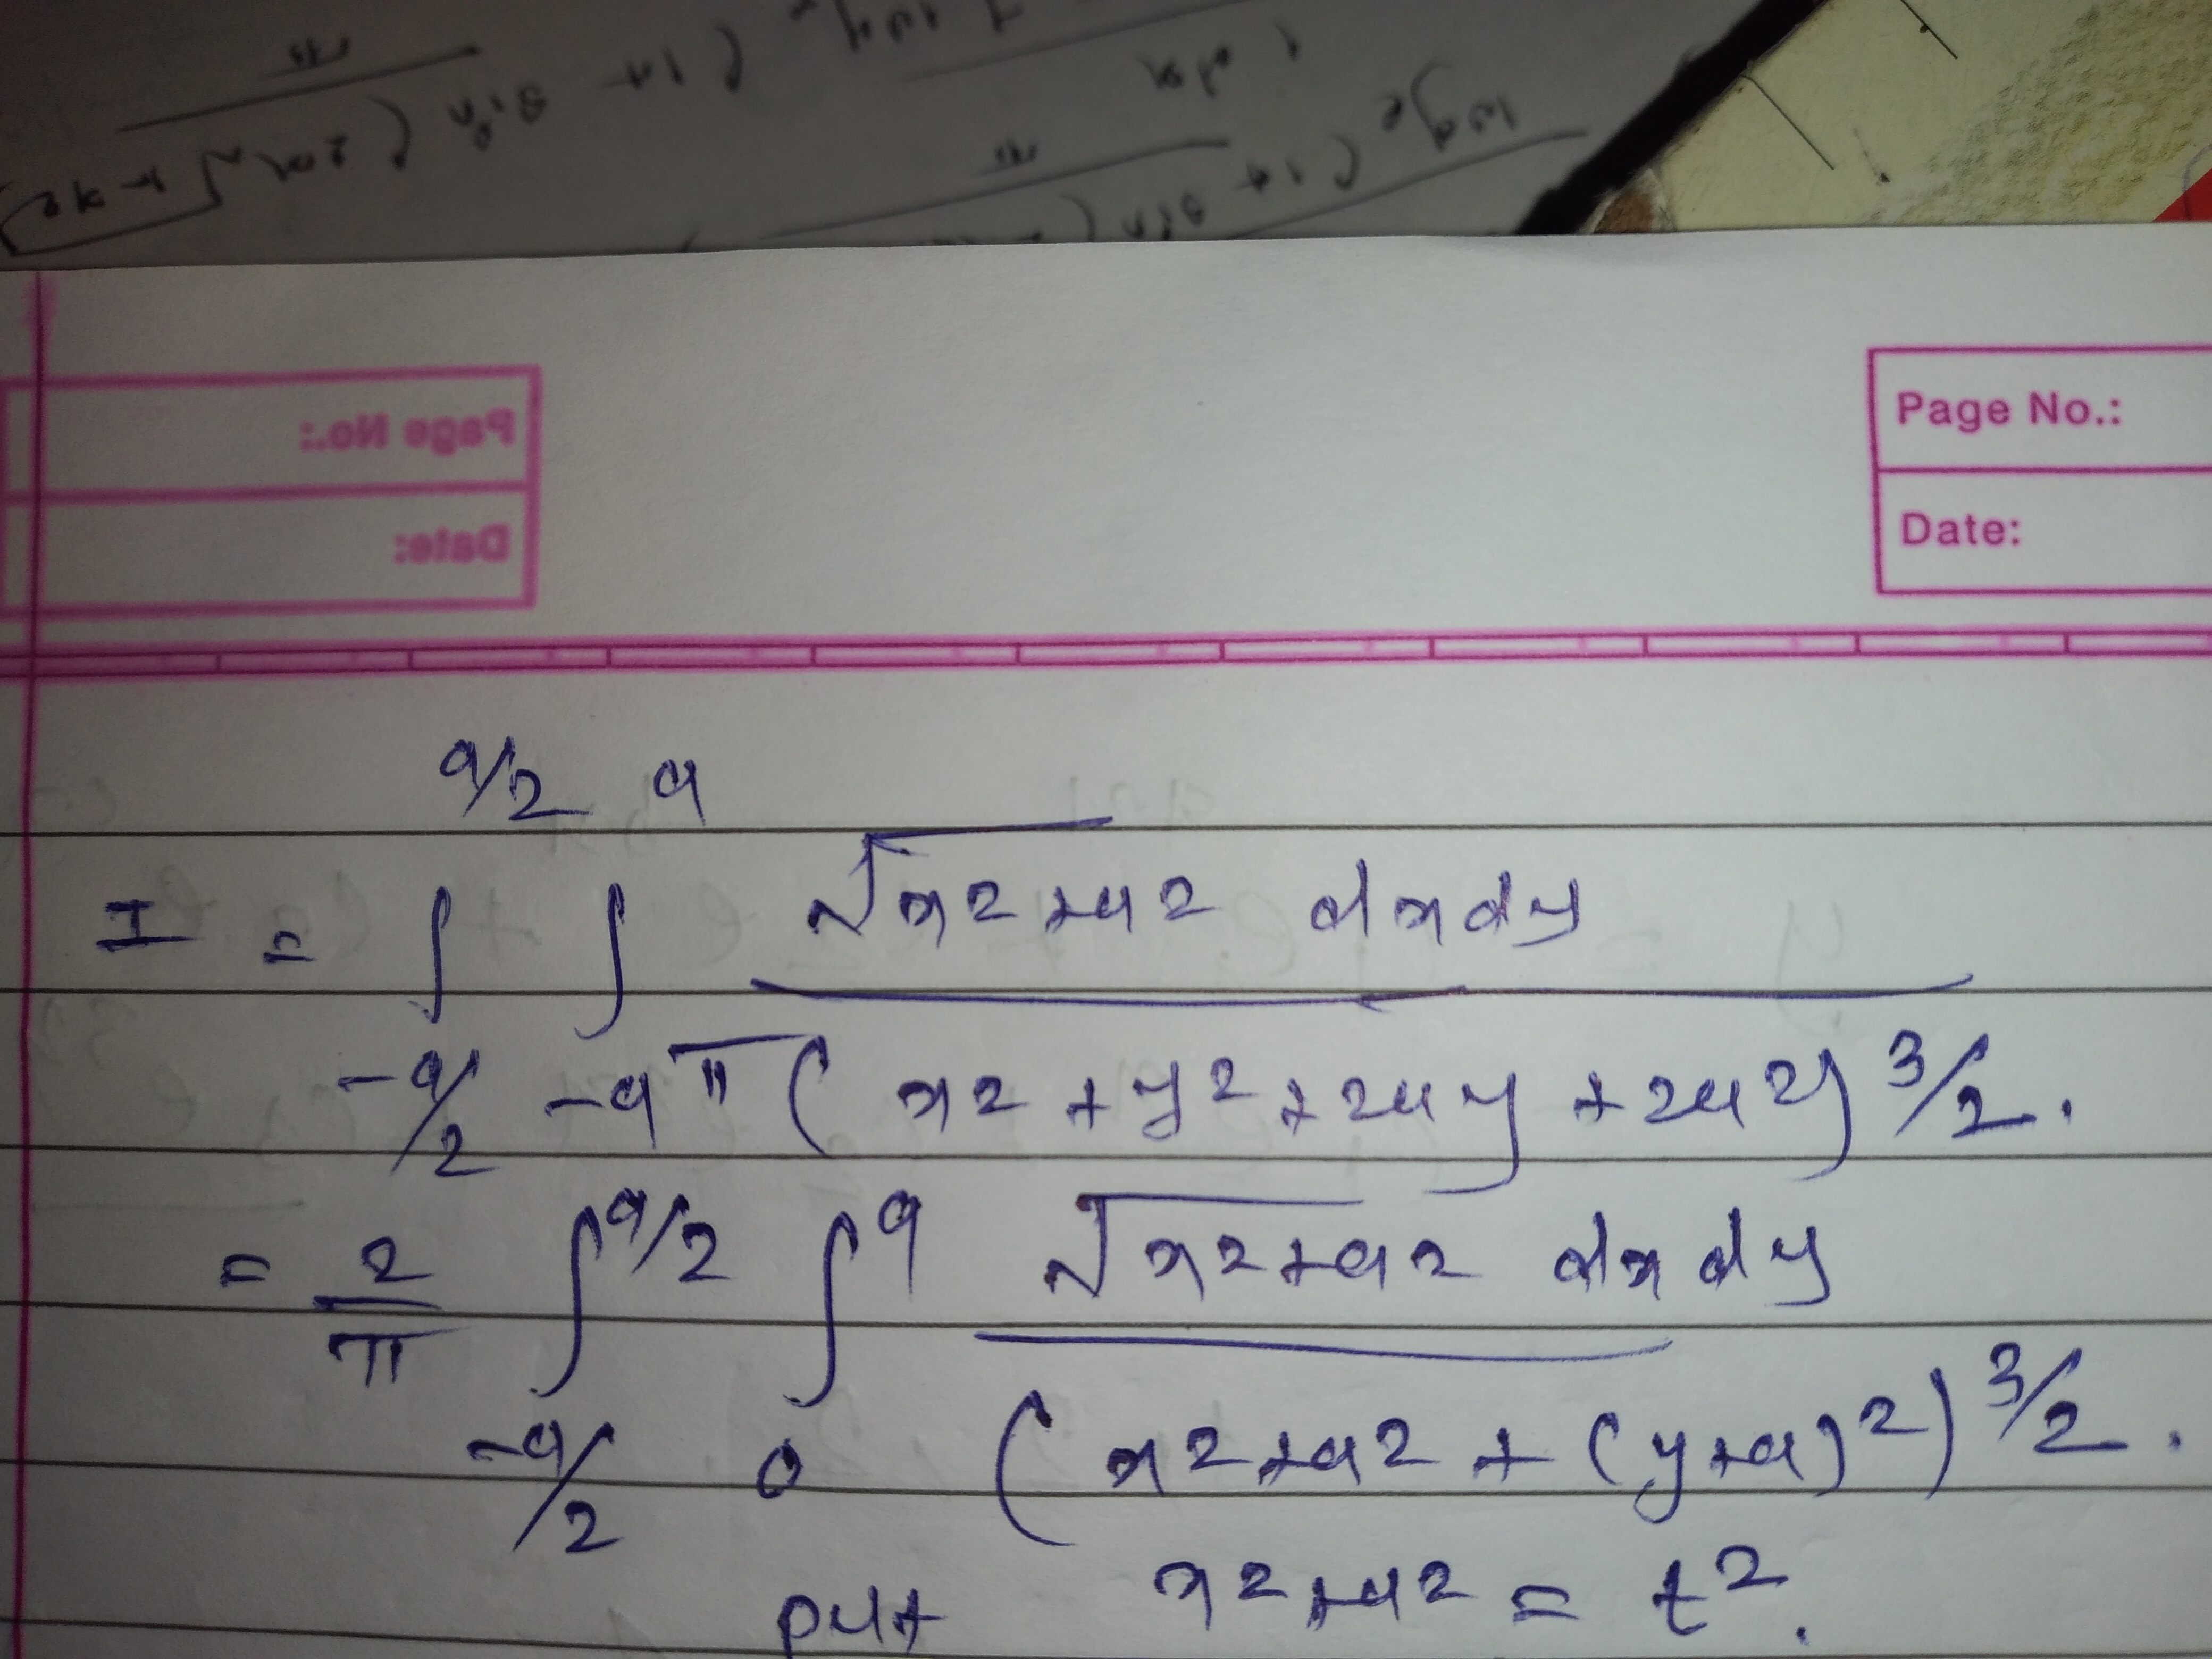 Page No.:
Date:
I = ∫_{-a/2}^{a/2} ∫_{-a}^{a} √x2+a2 dxdy / π (x2 + y2 + 2ay + 2a2)^{3/2}.
= 2/π ∫_{-a/2}^{a/2} ∫_{0}^{a} √x2+a2 dxdy / (x2+a2 + (y+a)2)^{3/2}.
put x2+a2 = t2.